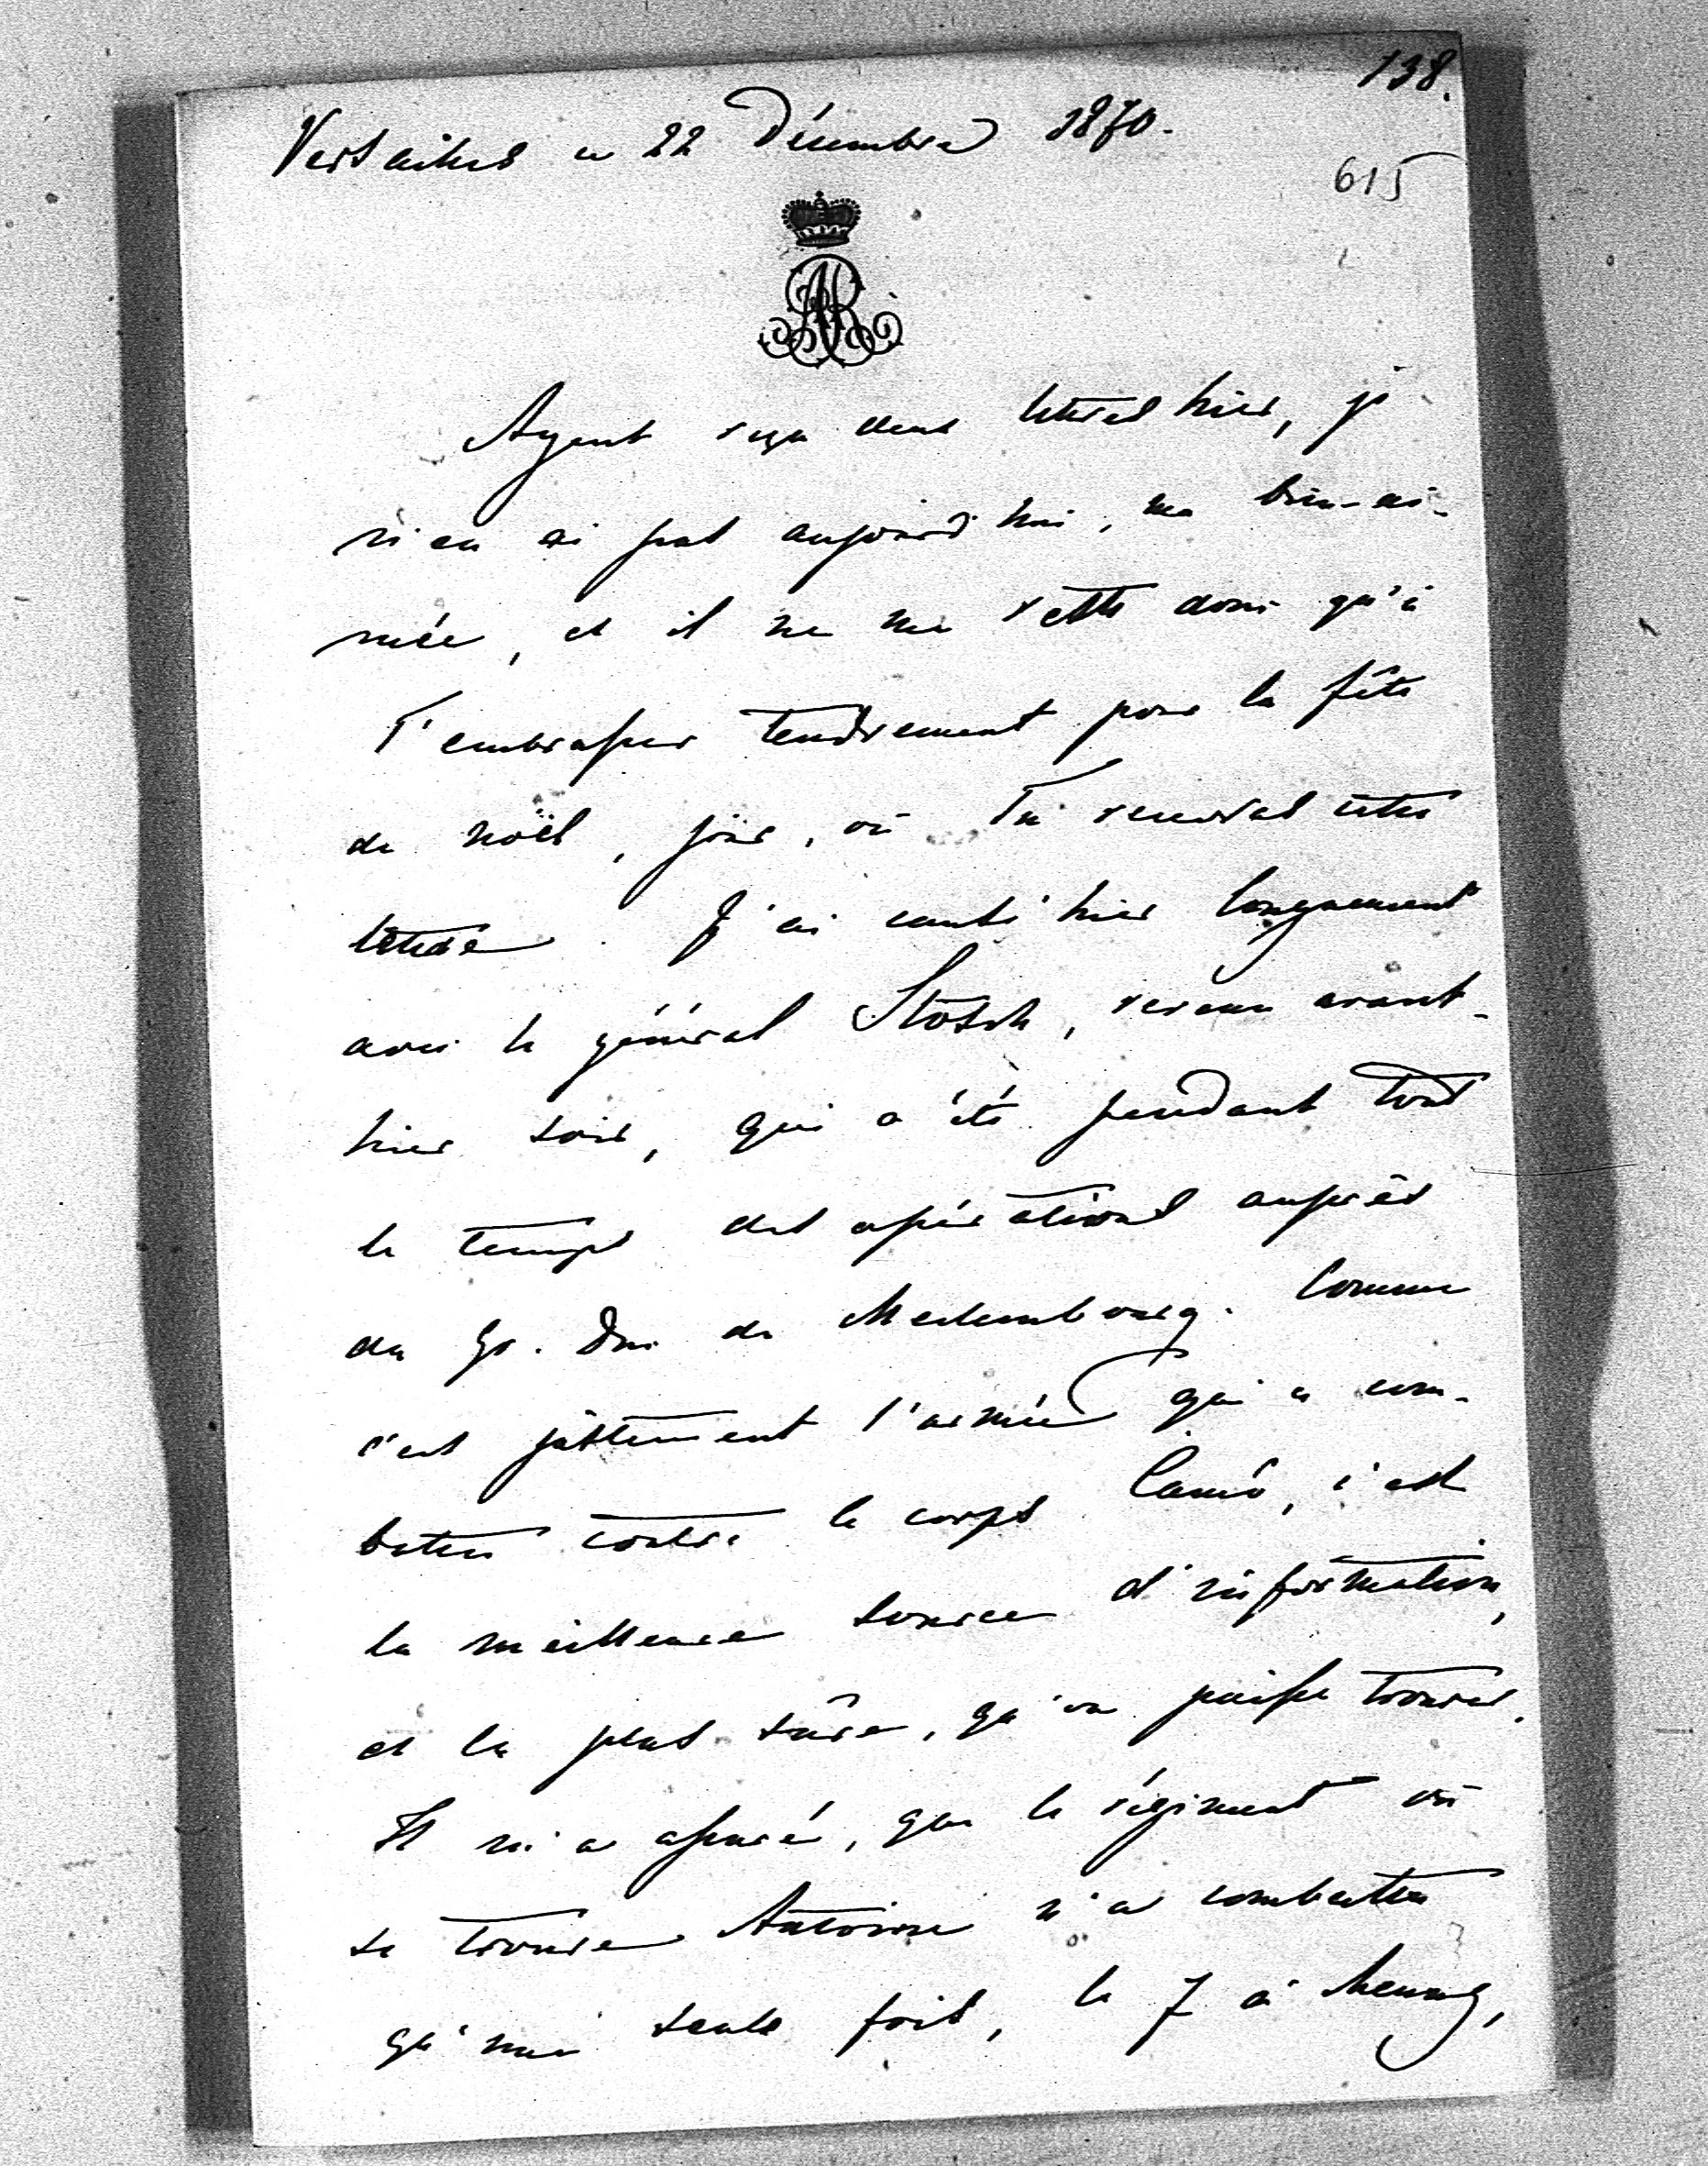 138.
Versailles ce 22 Décembre 1870.
615
AR
Ayant reçu deux lettres hier, je
n'en ai pas aujourd'hui, ma bien-ai-
mée, et il ne me reste donc qu'à
T'embrasser tendrement pour la fête
de noël, jour, où Tu recevras cette
lettre. J'ai causé hier longuement
avec le général Stosch, revenu avant-
hier soir, qui a été pendant tout
le temps des opérations auprès
du Gr. Duc de Meclembourg. Comme
c'est justement l'armée qui a com-
battu contre le corps Camô, c'est
la meilleure source d'information,
et la plus sûre, qu'on puisse trouver.
Il m'a assuré, que le régiment où
se trouve Antoine n'a combattu
qu'une seule fois, le 7 à Meung,